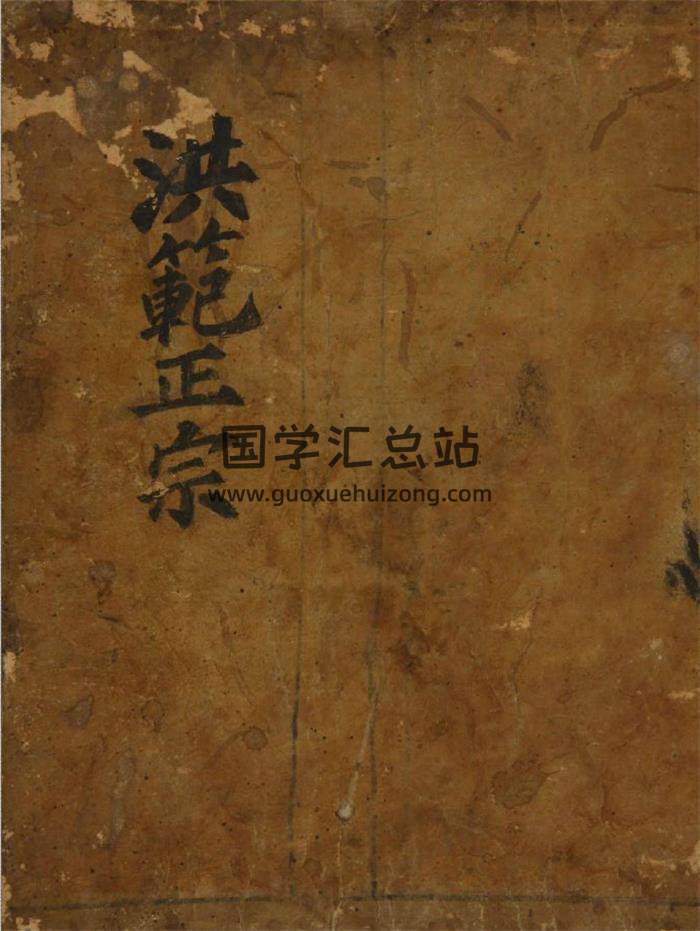 洪範正宗
国学汇总站
www.guoxuehuizong.com